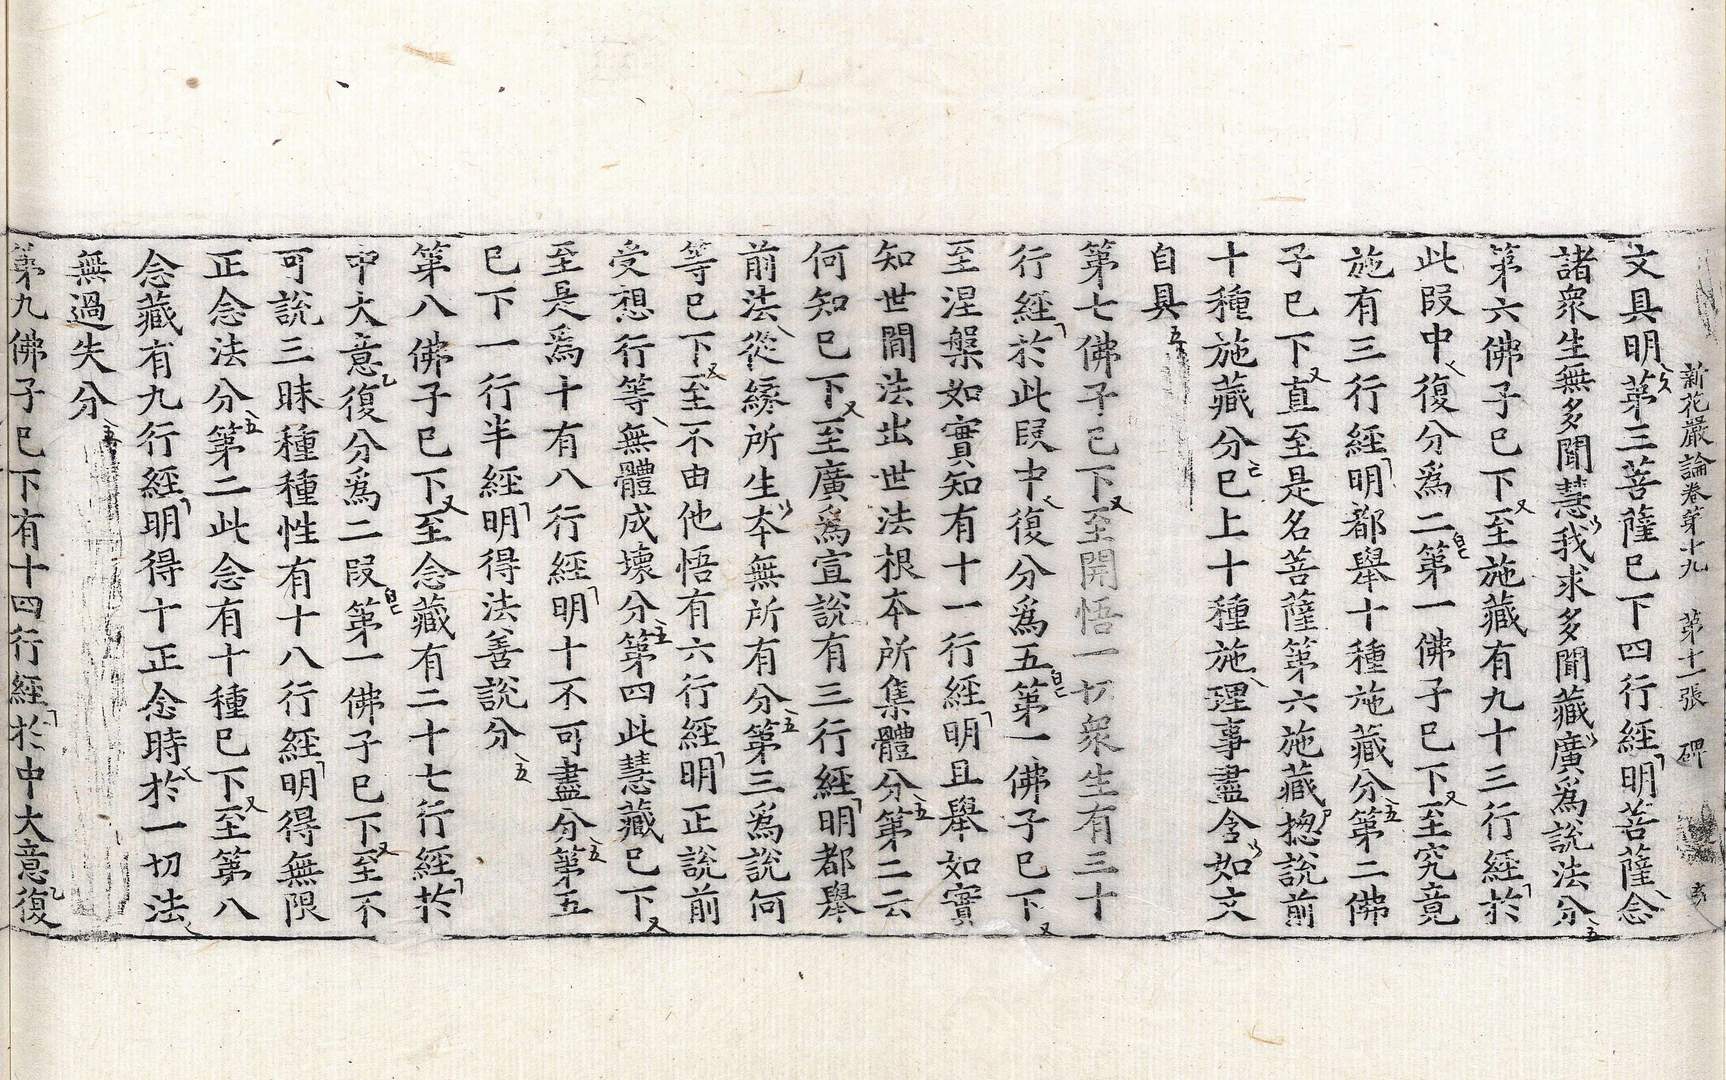 新花嚴論卷第十九 第十一張 碑
文具明第三菩薩已下四行經明菩薩念
諸衆生無多聞慧我求多聞藏廣爲說法分
第六佛子已下至施藏有九十三行經於
此段中復分爲二第一佛子已下至究竟
施有三行經明都舉十種施藏分第二佛
子已下直至是名菩薩第六施藏揔說前
十種施藏分已上十種施理事盡含如文
自具
第七佛子已下至開悟一切衆生有三十
行經於此段中復分爲五第一佛子已下
至涅槃如實知有十一行經明且舉如實
知世間法出世法根本所集體分第二云
何知已下至廣爲宣說有三行經明都舉
前法從緣所生本無所有分第三爲說何
等已下至不由他悟有六行經明正說前
受想行等無體成壞分第四此慧藏已下
至是爲十有八行經明十不可盡分第五
已下一行半經明得法善說分
第八佛子已下至念藏有二十七行經於
中大意復分爲二段第一佛子已下至不
可說三昧種種性有十八行經明得無限
正念法分第二此念有十種已下至第八
念藏有九行經明得十正念時於一切法
無過失分
第九佛子已下有十四行經於中大意復